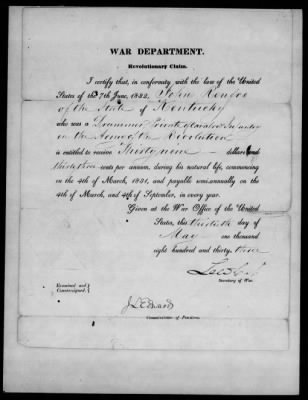 WAR DEPARTMENT.
Revolutionary Claim.
I certify that, in conformity with the law of the United
States of the 7th June, 1832, John
of the State of Kentucky
who was a Drummer, Private
in the Army of the Revolution
is entitled to receive Thirty nine dollars and
thirty three cents per annum, during his natural life, commencing
on the 4th of March, 1831, and payable semi-annually on the
4th of March, and 4th of September, in every year.
Given at the War Office of the United
States, this thirtieth day of
May one thousand
eight hundred and thirty three
Secretary of War.
Examined and
Countersigned.
Commissioner of Pensions.